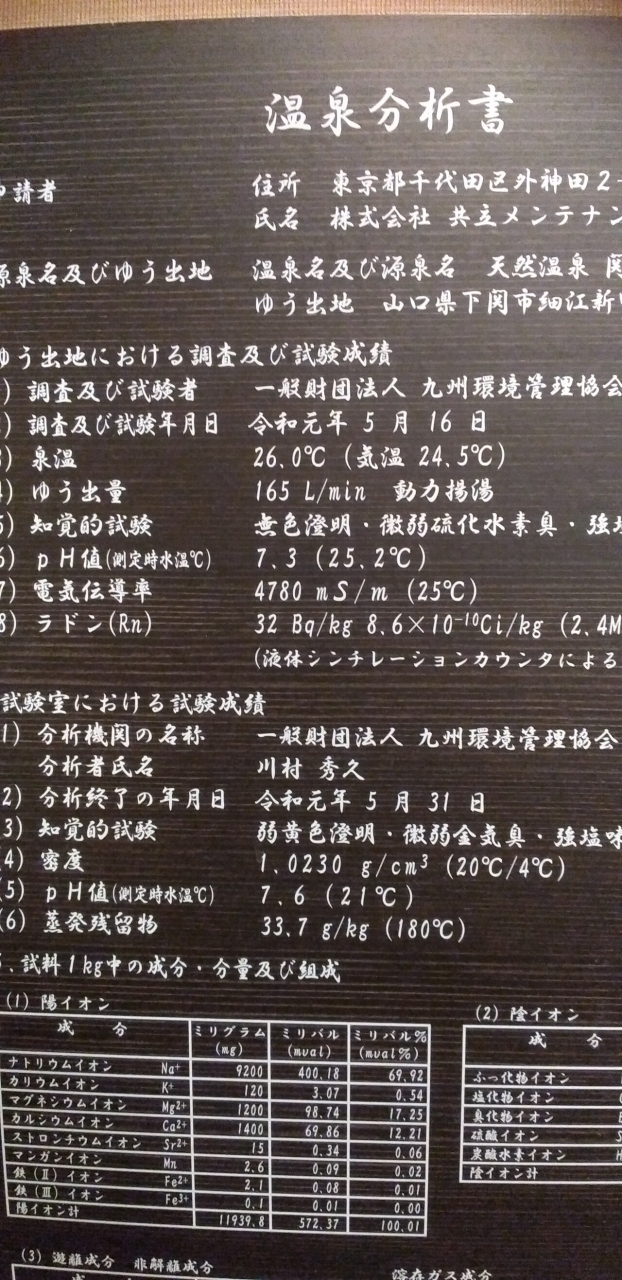 温泉分析書
請者 住所 東京都千代田区外神田2-
氏名 株式会社 共立メンテナン
源泉名及びゆう出地 温泉名及び源泉名 天然温泉 関
ゆう出地 山口県下関市細江新町
ゆう出地における調査及び試験成績
) 調査及び試験者 一般財団法人 九州環境管理協会
) 調査及び試験年月日 令和元年 5 月 16 日
3) 泉温 26.0℃ (気温 24.5℃)
4) ゆう出量 165 L/min 動力揚湯
5) 知覚的試験 無色澄明・微弱硫化水素臭・強塩
6) pH値(測定時水温℃) 7.3 (25.2℃)
7) 電気伝導率 4780 mS/m (25℃)
8) ラドン(Rn) 32 Bq/kg 8.6×10⁻¹⁰Ci/kg (2.4M
(液体シンチレーションカウンタによる
試験室における試験成績
1) 分析機関の名称 一般財団法人 九州環境管理協会
分析者氏名 川村 秀久
(2) 分析終了の年月日 令和元年 5 月 31 日
(3) 知覚的試験 弱黄色澄明・微弱金気臭・強塩味
(4) 密度 1.0230 g/cm³ (20℃/4℃)
(5) pH値(測定時水温℃) 7.6 (21℃)
(6) 蒸発残留物 33.7 g/kg (180℃)
.試料1kg中の成分・分量及び組成
(1) 陽イオン
成 分 ミリグラム (mg) ミリバル (mval) ミリバル% (mval%)
ナトリウムイオン Na⁺ 9200 400.18 69.92
カリウムイオン K⁺ 120 3.07 0.54
マグネシウムイオン Mg²⁺ 1200 98.74 17.25
カルシウムイオン Ca²⁺ 1400 69.86 12.21
ストロンチウムイオン Sr²⁺ 15 0.34 0.06
マンガンイオン Mn 2.6 0.09 0.02
鉄 (Ⅱ) イオン Fe²⁺ 2.1 0.08 0.01
鉄 (Ⅲ) イオン Fe³⁺ 0.1 0.01 0.00
陽イオン計 11939.8 572.37 100.01
(2) 陰イオン
成 分
ふっ化物イオン
塩化物イオン
臭化物イオン
硫酸イオン
炭酸水素イオン
陰イオン計
(3) 遊離成分 非解離成分
溶存ガス成分